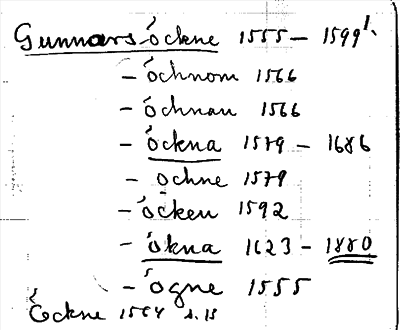 Gunnars-öckne 1555 – 1599
– öchnom 1566
– öchnan 1566
– öckna 1579 – 1686
– ochne 1579
– öcken 1592
– ökna 1623 – 1880
– ögne 1555
Öckne 1564 s. 13